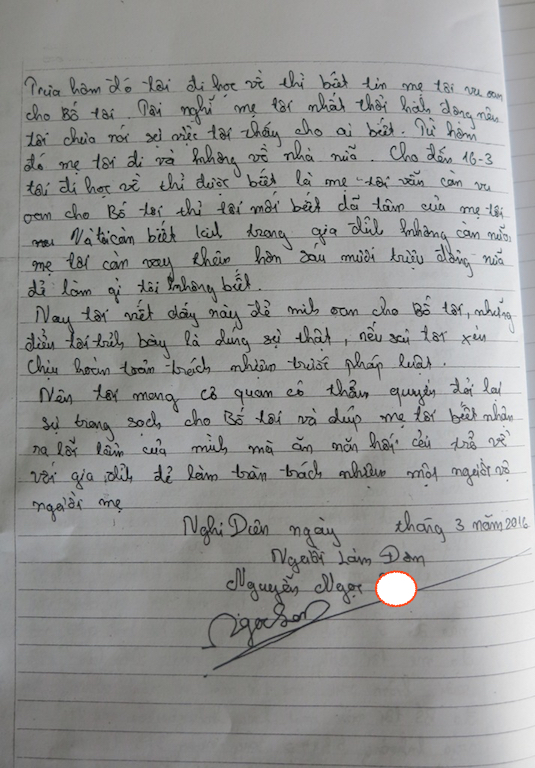 Trưa hôm đó tôi đi học về thì biết tin mẹ tôi vu oan
cho Bố tôi. Tôi nghĩ mẹ tôi nhất thời hành động nên
tôi chưa nói sự việc tôi thấy cho ai biết. Từ hôm
đó mẹ tôi đi và không về nhà nữa. Cho đến 16-3
tôi đi học về thì được biết là mẹ tôi vẫn còn vu
oan cho Bố tôi thì tôi mới biết dã tâm của mẹ tôi
Và tôi còn biết trong gia đình không còn nữa,
mẹ tôi còn vay thêm hơn sáu mươi triệu đồng nữa
để làm gì tôi không biết.
Nay tôi viết dấy này để minh oan cho Bố tôi, những
điều tôi trình bày là đúng sự thật, nếu sai tôi xin
chịu hoàn toàn trách nhiệm trước pháp luật.
Nên tôi mong cơ quan có thẩm quyền đòi lại
sự trong sạch cho Bố tôi và dúp mẹ tôi biết nhận
ra lỗi lầm của mình mà ăn năn hối cải trở về
với gia đình để làm tròn trách nhiệm một người vợ
người mẹ
Nghi Diên ngày tháng 3 năm 2016
Người Làm Đơn
Nguyễn Ngọc
Ngọc Sơn